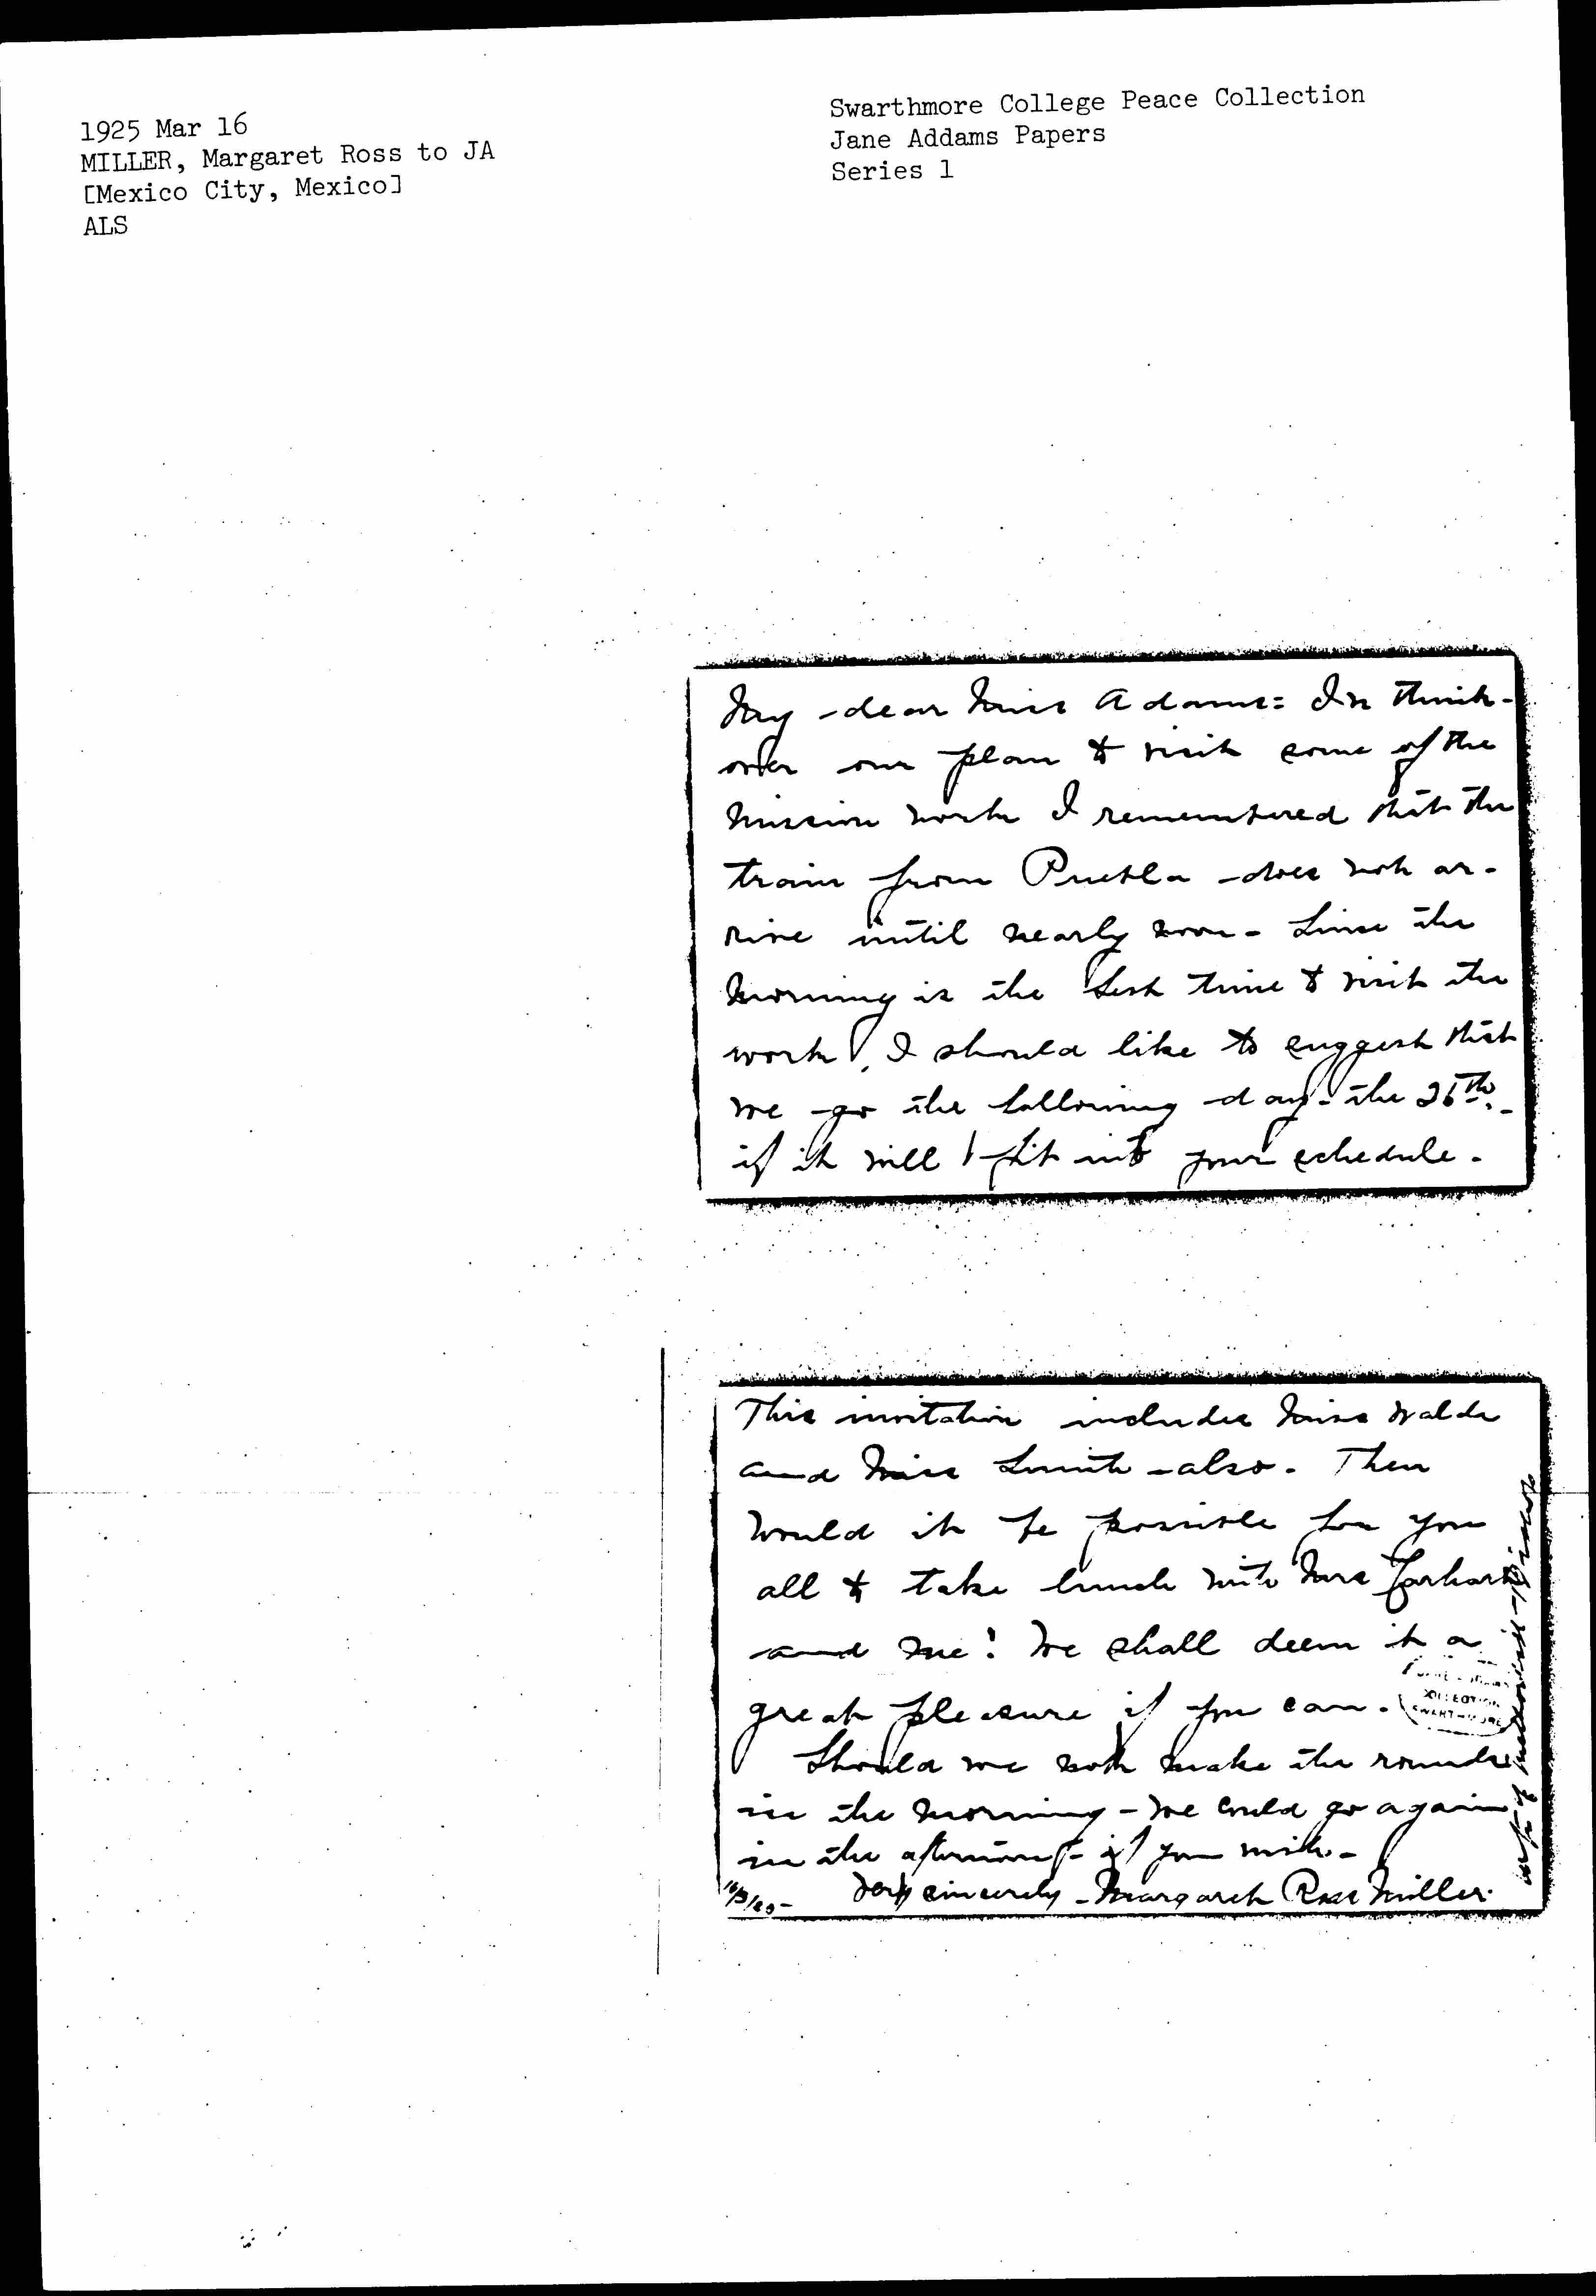 1925 Mar 16
MILLER, Margaret Ross to JA
[Mexico City, Mexico]
ALS
Swarthmore College Peace Collection
Jane Addams Papers
Series 1
My dear Miss Adams= In think-
over our plan to visit some of the
mission work I remembered that the
train from Puebla does not ar-
rive until nearly noon- Since the
morning is the best time to visit the
work, I should like to suggest that
we go the following day- the 26th.-
if it will fit into your schedule.
This invitation includes Miss Wald
and Miss Smith also. Then
would it be possible for you
all to take lunch with Mrs
and me! We shall deem it a
great pleasure if you can.
COLLECTION
SWARTHMORE
Should we not make the rounds
in the morning - we could go again
in the afternoon - if you wish.-
16/3/25- Very sincerely - Margaret Ross Miller.